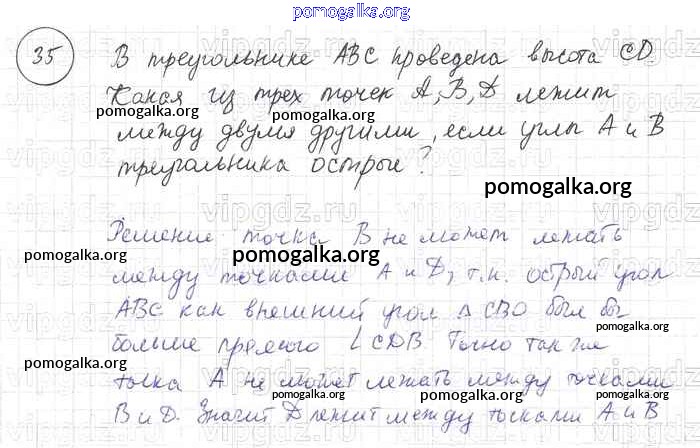 pomogalka.org
35
В треугольнике ABC проведена высота CD.
Какая из трех точек A, B, D лежит
pomogalka.org
pomogalka.org
между двумя другими, если углы A и B
треугольника острые?
pomogalka.org
Решение точка B не может лежать
pomogalka.org
pomogalka.org
между точками A и D, т.к. острый угол
ABC как внешний угол △ CBD был бы
pomogalka.org
больше прямого ∠ CDB Точно так же
pomogalka.org
pomogalka.org
точка A не может лежать между точками
B и D. Значит D лежит между точками A и B
pomogalka.org